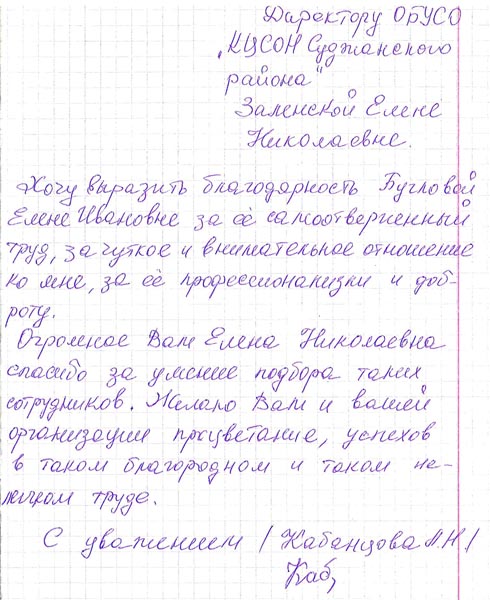 Директору ОБУСО
"КЦСОН Суджанского
района"
Заленской Елене
Николаевне.
Хочу выразить благодарность Бугловой
Елене Ивановне за её самоотверженный
труд, за чуткое и внимательное отношение
ко мне, за её профессионализм и доб-
роту.
Огромное Вам Елена Николаевна
спасибо за умение подбора таких
сотрудников. Желаю Вам и вашей
организации процветание, успехов
в таком благородном и таком не-
легком труде.
С уважением / Кабанцова А.Н /
Каб